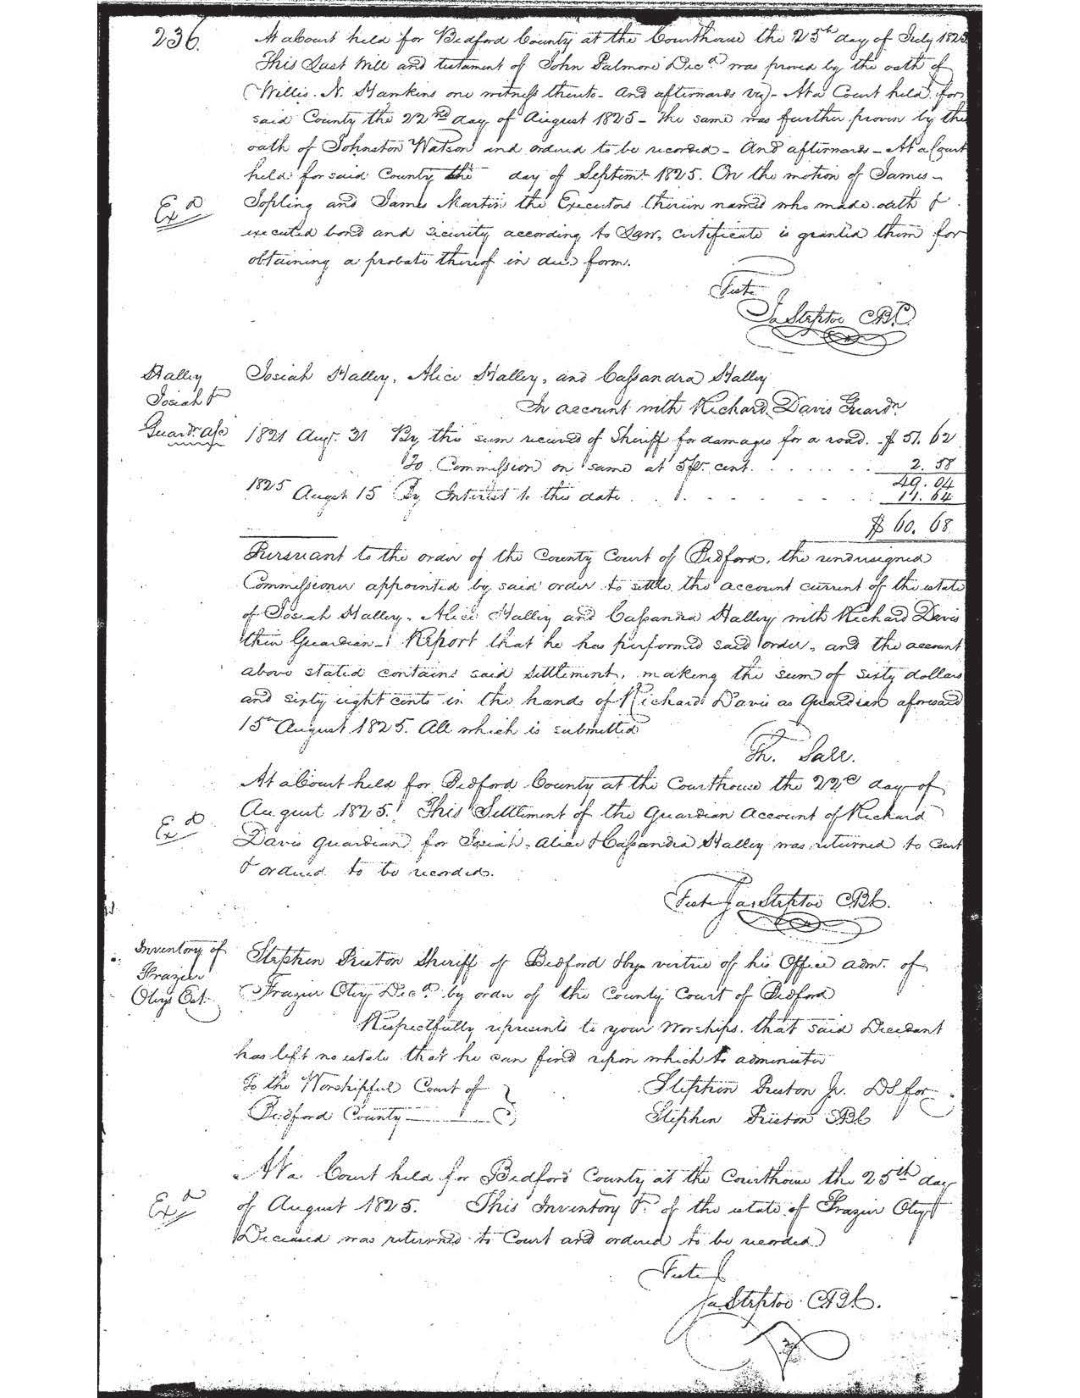 236.
At a Court held for Bedford County at the Courthouse the 25th day of July 1825
This Last Will and testament of John Palmore Decd was proved by the oath of
Willis. N. Hawkins one witness thereto - And afterwards viz - At a Court held for
said County the 22nd day of August 1825 - the same was further proven by the
oath of Johnston Watson and ordered to be recorded - And afterwards - At a Court
held for said County the day of Septemr 1825. On the motion of James
Exd
Jopling and James Martin the Executors therein named who made oath &
executed bond and security according to Law, certificate is granted them for
obtaining a probate thereof in due form.
Teste
Ja Steptoe CBC.
Halley
Josiah &
Guardn a/c
Josiah Halley, Alice Halley, and Cassandra Halley
In account with Richard Davis Guardn
1821 Augt. 31 By this sum received of Sheriff for damages for a road. $ 51. 62
To Commission on same at 5 pr. cent. 2. 58
49. 04
1825 August 15 By Interest to this date 11. 64
$ 60. 68
Pursuant to the order of the County Court of Bedford, the undersigned
Commissioner appointed by said order to settle the account current of the estate
of Josiah Halley, Alice Halley and Cassandra Halley with Richard Davis
their Guardian - Report that he has performed said order, and the account
above stated contains said settlement, making the sum of sixty dollars
and sixty eight cents in the hands of Richard Davis as Guardian aforesaid
15th August 1825. All which is submitted
Th. Sale.
At a Court held for Bedford County at the Courthouse the 22d day of
August 1825. This Settlement of the Guardian Account of Richard
Exd
Davis guardian for Josiah, Alice & Cassandra Halley was returned to Court
& ordered to be recorded.
Teste Ja. Steptoe CBC.
Inventory of
Frazier
Oteys Est.
Stephen Preston Sheriff of Bedford & by virtue of his Office adm. of
Frazier Otey Decd. by order of the County Court of Bedford
Respectfully represents to your Worships, that said Decedant
has left no estate that he can find upon which to administer
To the Worshipful Court of
Bedford County
Stephen Preston Jr. DS for
Stephen Preston SBC
At a Court held for Bedford County at the Courthouse the 25th day
Exd
of August 1825. This Inventory &. of the estate of Frazier Otey
Deceased was returned to Court and ordered to be recorded
Teste
Ja. Steptoe CBC.